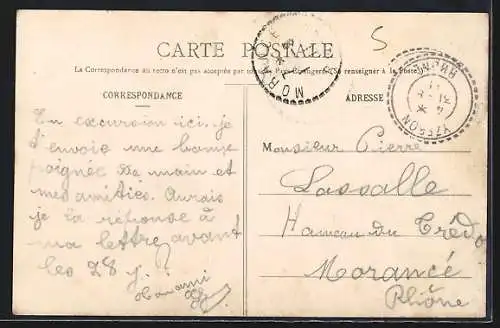 CARTE POSTALE
5
La Correspondance au recto n'est pas acceptée par tous les Pays Étrangers (Se renseigner à la Poste)
CORRESPONDANCE
ADRESSE
MORNANT
YZERON
RHONE
En excursion ici, je
t'envoie une bonne
poignée de main et
mes amitiés. Aurais
je ta réponse à
ma lettre avant
les 28 j ?
Ton ami
Monsieur Pierre
Lassalle
Hameau du Crédo
Morancé
Rhône